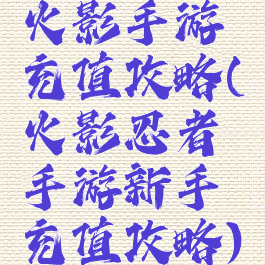 火影手游
充值攻略(
火影忍者
手游新手
充值攻略)